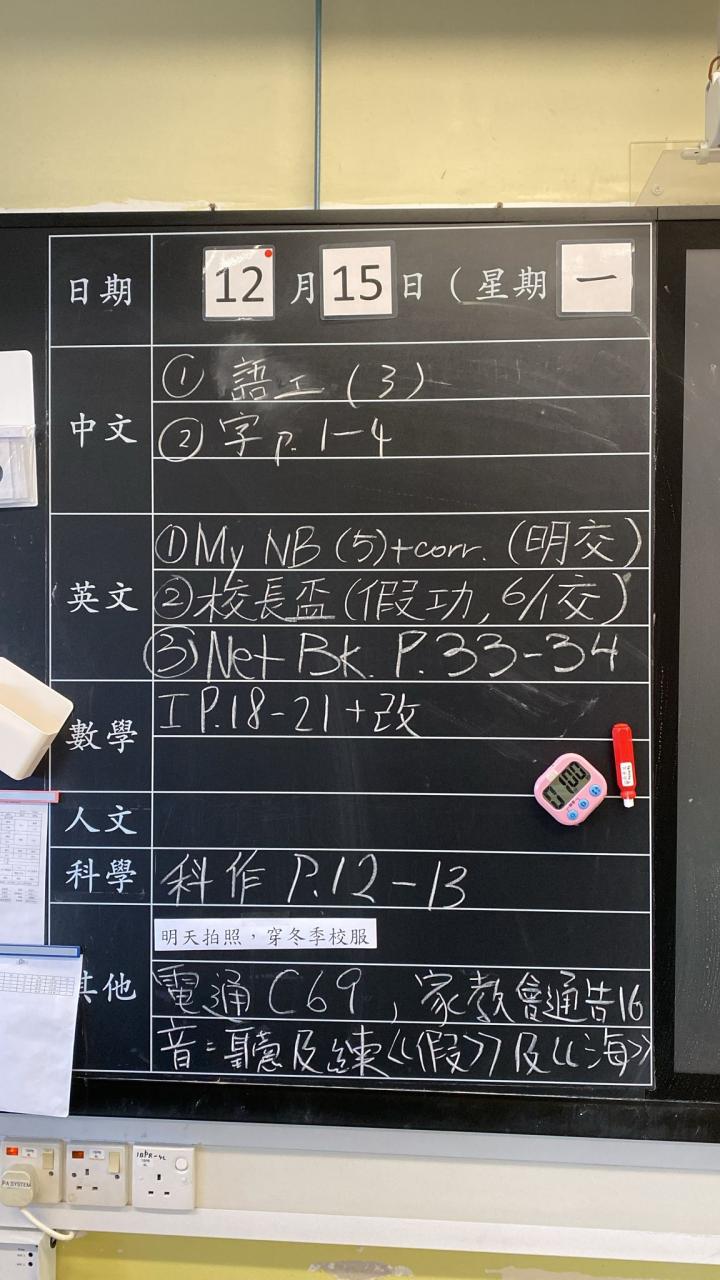 日期 12月15日（星期一
中文 ① 語工（3）
② 字 p. 1-4
英文 ① My NB (5)+corr. (明交)
② 校長盃(假功, 6/1交)
③ Net Bk. P. 33-34
數學 I P.18-21+改
0100
人文
科學 科作 P.12-13
其他 明天拍照，穿冬季校服
電通 C69 , 家教會通告16
音：聽及練《假》及《海》
PA SYSTEM